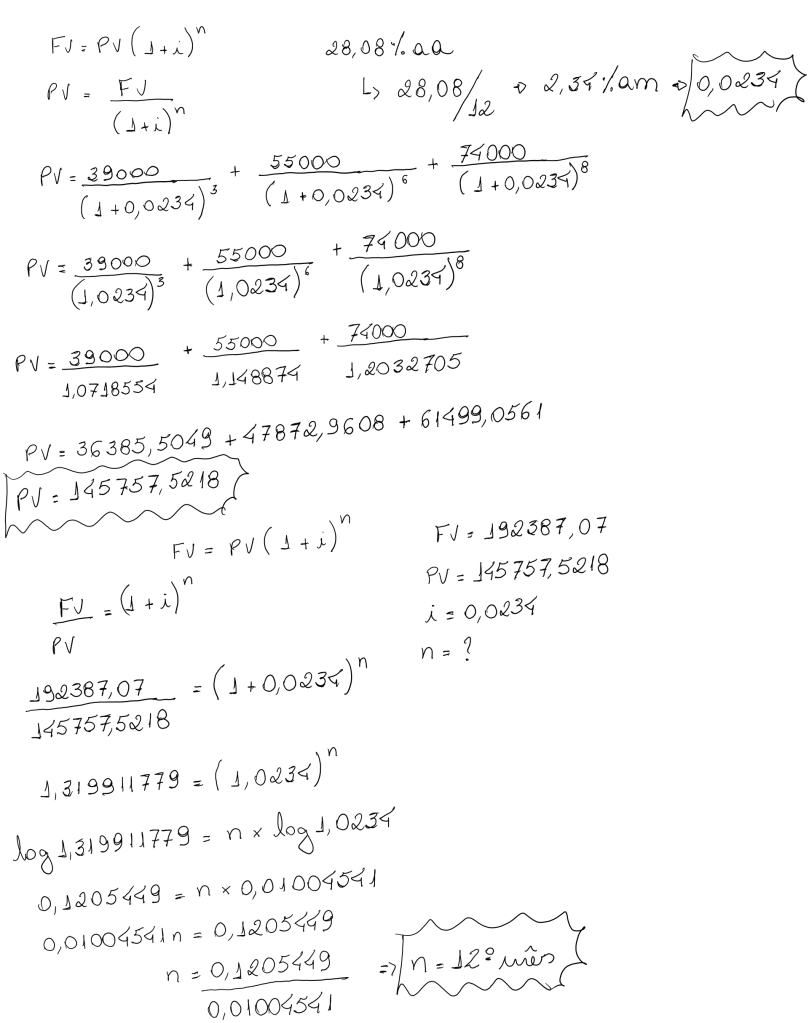 FV = PV (1+i)^n
28,08% aa
PV = FV / (1+i)^n
↳ 28,08/12 ⇒ 2,34% am ⇒ 0,0234
PV = 39000 / (1+0,0234)^3 + 55000 / (1+0,0234)^6 + 74000 / (1+0,0234)^8
PV = 39000 / (1,0234)^3 + 55000 / (1,0234)^6 + 74000 / (1,0234)^8
PV = 39000 / 1,0718554 + 55000 / 1,148874 + 74000 / 1,2032705
PV = 36385,5049 + 47872,9608 + 61499,0561
PV = 145757,5218
FV = PV (1+i)^n
FV / PV = (1+i)^n
192387,07 / 145757,5218 = (1+0,0234)^n
1,319911779 = (1,0234)^n
log 1,319911779 = n × log 1,0234
0,1205449 = n × 0,01004541
0,01004541n = 0,1205449
n = 0,1205449 / 0,01004541
⇒ n = 12º mês
FV = 192387,07
PV = 145757,5218
i = 0,0234
n = ?